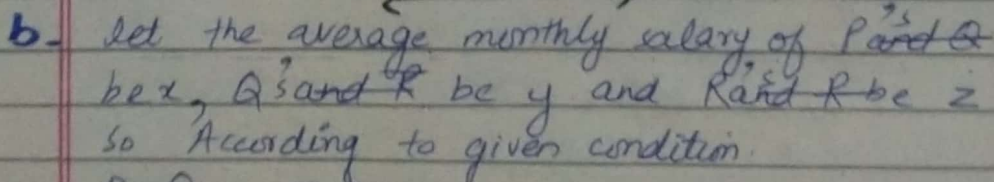 b- Let the average monthly salary of P's and Q
be x, Q's and R be y and R's and R be z
So According to given condition.